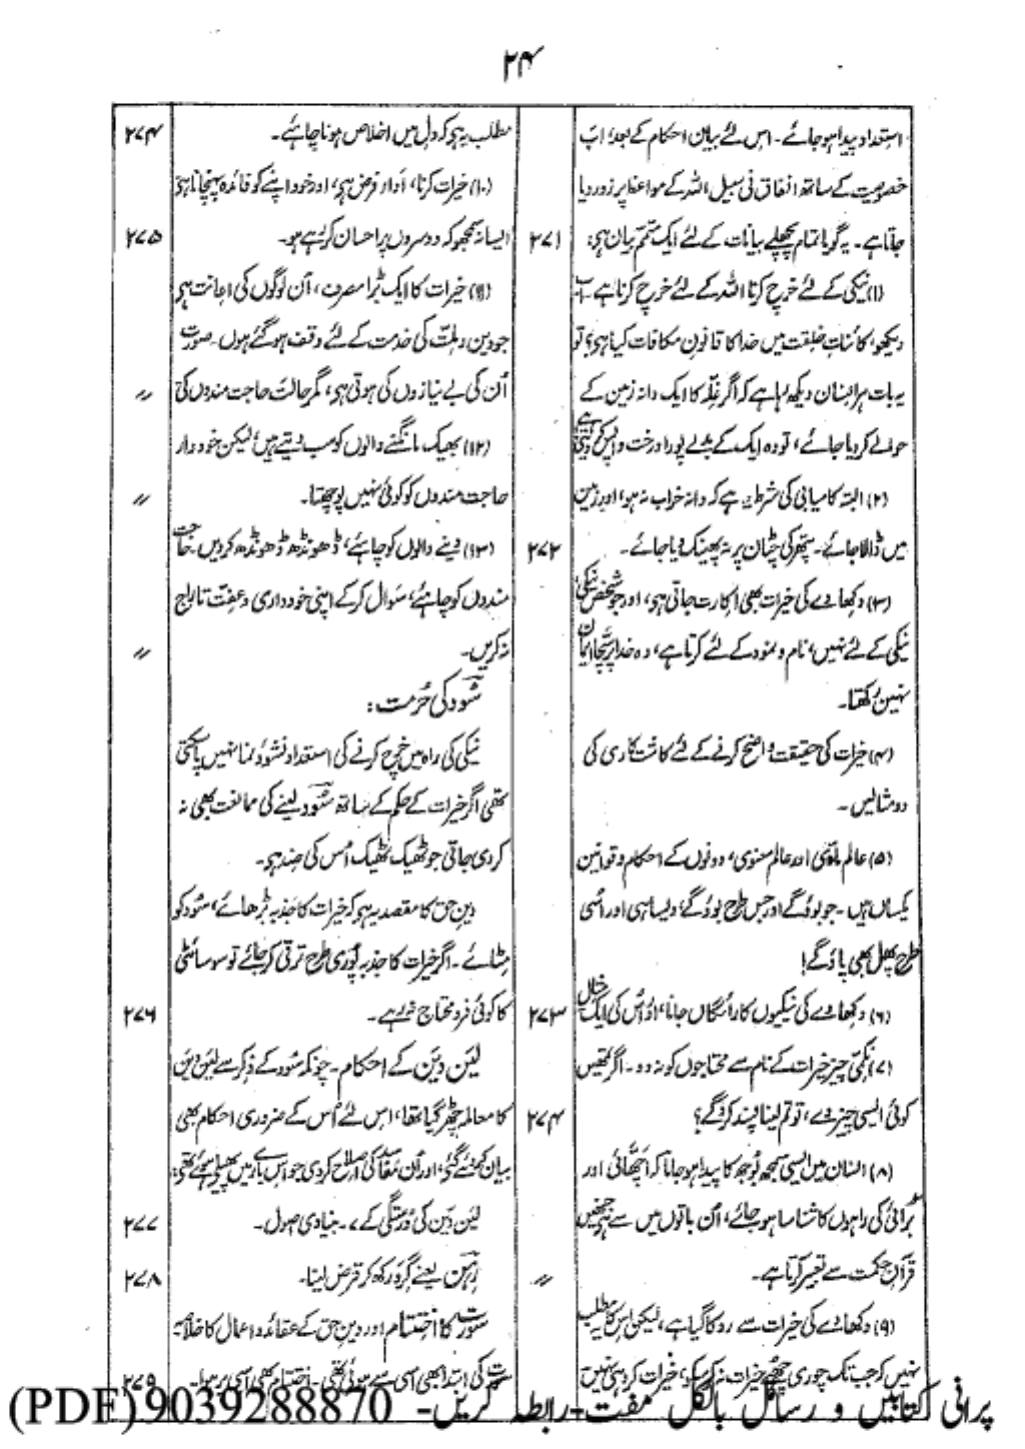 ۲۴
استعداد پیدا ہو جائے۔ اس لئے بیان احکام کے بعد، اب
خصوصیت کے ساتھ انفاق فی سبیل اللہ کے مواعظ پر زور دیا
جاتا ہے۔ یہ گویا تمام پچھلے بیانات کے لئے ایک متمم بیان ہی: ۲۷۱
(۱) نیکی کے لئے خرچ کرنا اللہ کے لئے خرچ کرنا ہے۔
دیکھو، کائنات خلقت میں خدا کا قانون مکافات کیا ہی؟ تو
یہ بات ہر انسان دیکھ رہا ہے کہ اگر غلّہ کا ایک دانہ زمین کے
حوالے کر دیا جائے، تو وہ ایک کے بدلے پورا درخت واپس کر دیتی ہے
(۲) البتہ کامیابی کی شرط یہ ہے کہ دانہ خراب نہ ہو، اور زمین
میں ڈالا جائے۔ پتھر کی چٹان پر نہ پھینک دیا جائے۔ ۲۷۲
(۳) دکھاوے کی خیرات بھی اکارت جاتی ہی، اور جو شخص نیکی
نیکی کے لئے نہیں، نام و نمود کے لئے کرتا ہے، وہ خدا پر سچا ایمان
نہیں رکھتا۔
(۴) خیرات کی حقیقت واضح کرنے کے لئے کاشتکاری کی
دو مثالیں۔
(۵) عالم مادّی اور عالم معنوی، دونوں کے احکام و قوانین
یکساں ہیں۔ جو بوؤگے اور جس طرح بوؤگے، ویسا ہی اور اُسی
طرح پھل بھی پاؤگے!
(۶) دکھاوے کی نیکیوں کا رائگاں جانا، اور اُس کی ایک مثال ۲۷۳
(۷) نکمّی چیز خیرات کے نام سے محتاجوں کو نہ دو۔ اگر تمہیں
کوئی ایسی چیز دے، تو تم لینا پسند کروگے؟ ۲۷۴
(۸) انسان میں ایسی سمجھ بوجھ کا پیدا ہو جانا کہ اچھائی اور
بُرائی کی راہوں کا شناسا ہو جائے، اُن باتوں میں سے ہی جنہیں
قرآن حکمت سے تعبیر کرتا ہے۔ 〃
(۹) دکھاوے کی خیرات سے روکا گیا ہے، لیکن اس کا یہ مطلب
نہیں کہ جب تک چوری چھپے خیرات نہ کر سکو، خیرات کرو ہی نہیں
مطلب یہ ہی کہ دل میں اخلاص ہونا چاہئے۔ ۲۷۴
(۱۰) خیرات کرنا، اداء فرض ہی، اور خود اپنے کو فائدہ پہنچانا ہی
ایسا نہ سمجھو کہ دوسروں پر احسان کر رہے ہو۔ ۲۷۵
(۱۱) خیرات کا ایک بڑا مصرف، اُن لوگوں کی اعانت ہی
جو دین و ملت کی خدمت کے لئے وقف ہو گئے ہوں۔ صورت
اُن کی بے نیازوں کی ہوتی ہی، مگر حالت حاجت مندوں کی 〃
(۱۲) بھیک مانگنے والوں کو سب دیتے ہیں، لیکن خوددار
حاجت مندوں کو کوئی نہیں پوچھتا۔ 〃
(۱۳) دینے والوں کو چاہئے، ڈھونڈھ ڈھونڈھ کر دیں۔ حاجت
مندوں کو چاہئے، سوال کرکے اپنی خودداری و عفت تاراج
نہ کریں۔ 〃
سُود کی حُرمت:
نیکی کی راہ میں خرچ کرنے کی استعداد نشوونما نہیں پا سکتی
تھی اگر خیرات کے حکم کے ساتھ سُود لینے کی ممانعت بھی نہ
کردی جاتی جو ٹھیک ٹھیک اُس کی ضد ہی۔
دین حق کا مقصد یہ ہی کہ خیرات کا جذبہ بڑھائے، سُود کو
مٹائے۔ اگر خیرات کا جذبہ پوری طرح ترقی کر جائے تو سوسائٹی
کا کوئی فرد محتاج نہ رہے۔ ۲۷۶
لین دین کے احکام۔ چونکہ سُود کے ذکر سے لین دین
کا معاملہ چھڑ گیا تھا، اس لئے اُس کے ضروری احکام بھی
بیان کر دئے گئے، اور اُن مفاسد کی اصلاح کردی جو اس بارے میں پھیلے ہوئے تھے:
لین دین کی درستگی کے ۷۔ بنیادی اصول۔ ۲۷۷
رہن یعنے گرو رکھ کر قرض لینا۔ ۲۷۸
سُورت کا اختتام اور دین حق کے عقائد و اعمال کا خلاصہ
سورت کی ابتدا بھی اسی سے ہوئی تھی۔ اختتام بھی اسی پر ہوا۔ ۲۷۹
پرانی کتابیں و رسائل بالکل مفت۔رابطہ کریں۔ 9039288870(PDF)